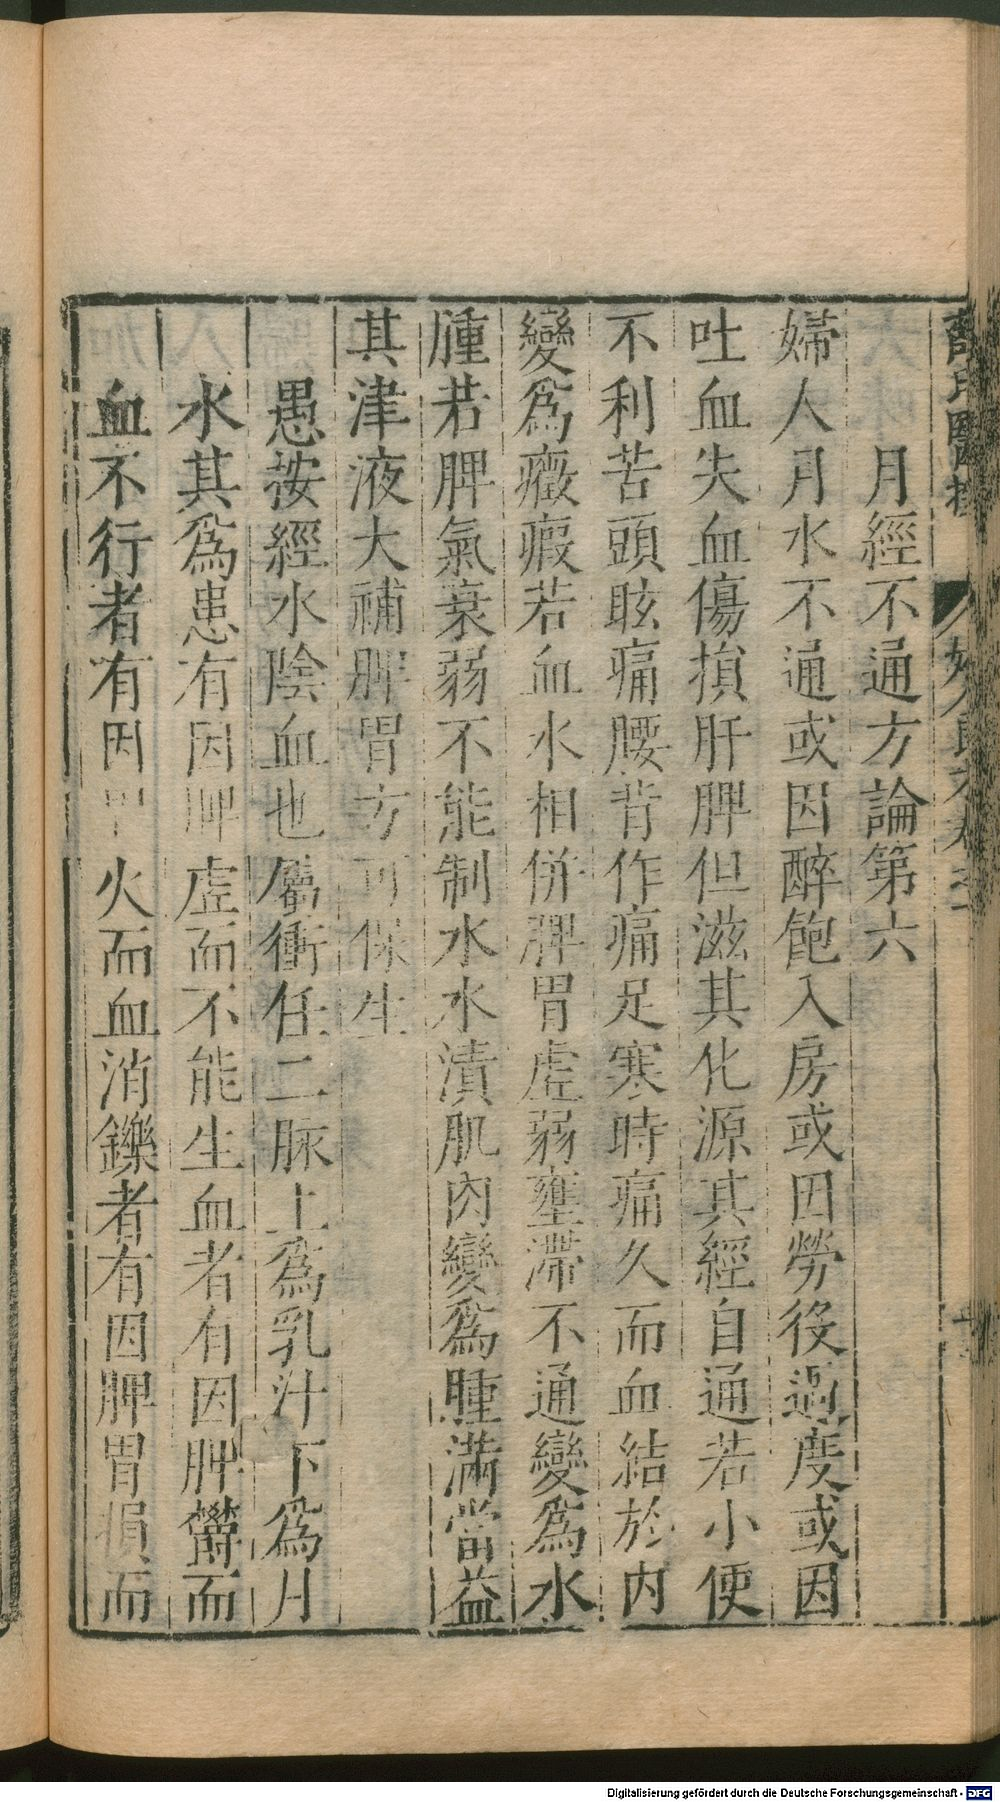 薛氏醫按 婦人良方卷之一
月經不通方論第六
婦人月水不通或因醉飽入房或因勞役過度或因
吐血失血傷損肝脾但滋其化源其經自通若小便
不利苦頭眩痛腰背作痛足寒時痛久而血結於內
變爲癥瘕若血水相併脾胃虛弱壅滯不通變爲水
腫若脾氣衰弱不能制水水漬肌肉變爲腫滿當益
其津液大補脾胃方可保生
愚按經水陰血也屬衝任二脉上爲乳汁下爲月
水其爲患有因脾虛而不能生血者有因脾欝而
血不行者有因胃火而血消鑠者有因脾胃損而
Digitalisierung gefördert durch die Deutsche Forschungsgemeinschaft - DFG